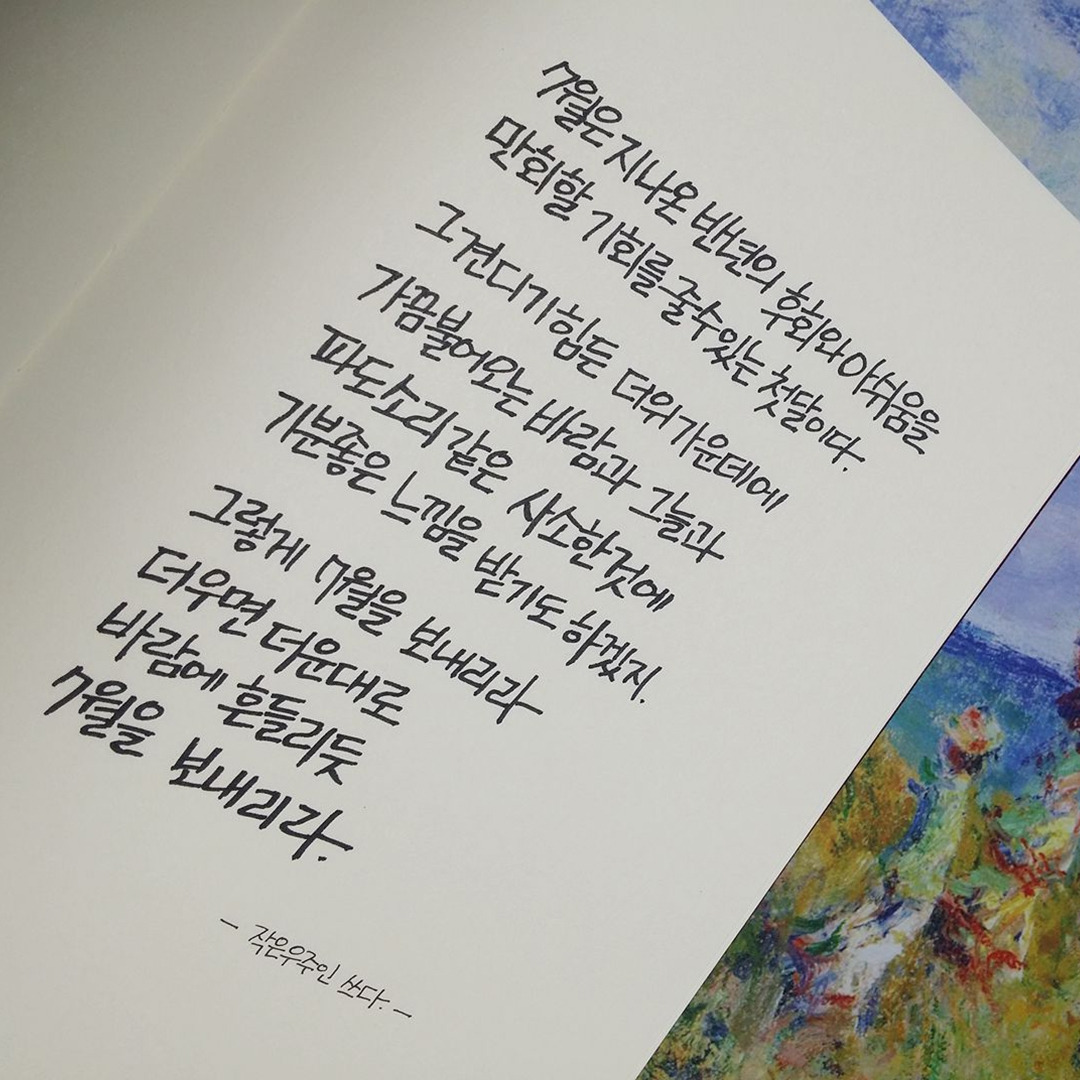 7월은 지나온 반년의 후회와 아쉬움을
만회할 기회를 줄 수 있는 첫달이다.
그 견디기 힘든 더위 가운데에
가끔 불어오는 바람과 그늘과
파도소리 같은 사소한 것에
기분 좋은 느낌을 받기도 하겠지.
그렇게 7월을 보내리라
더우면 더운대로
바람에 흔들리듯
7월을 보내리라.
- 작은우주인 쓰다. -